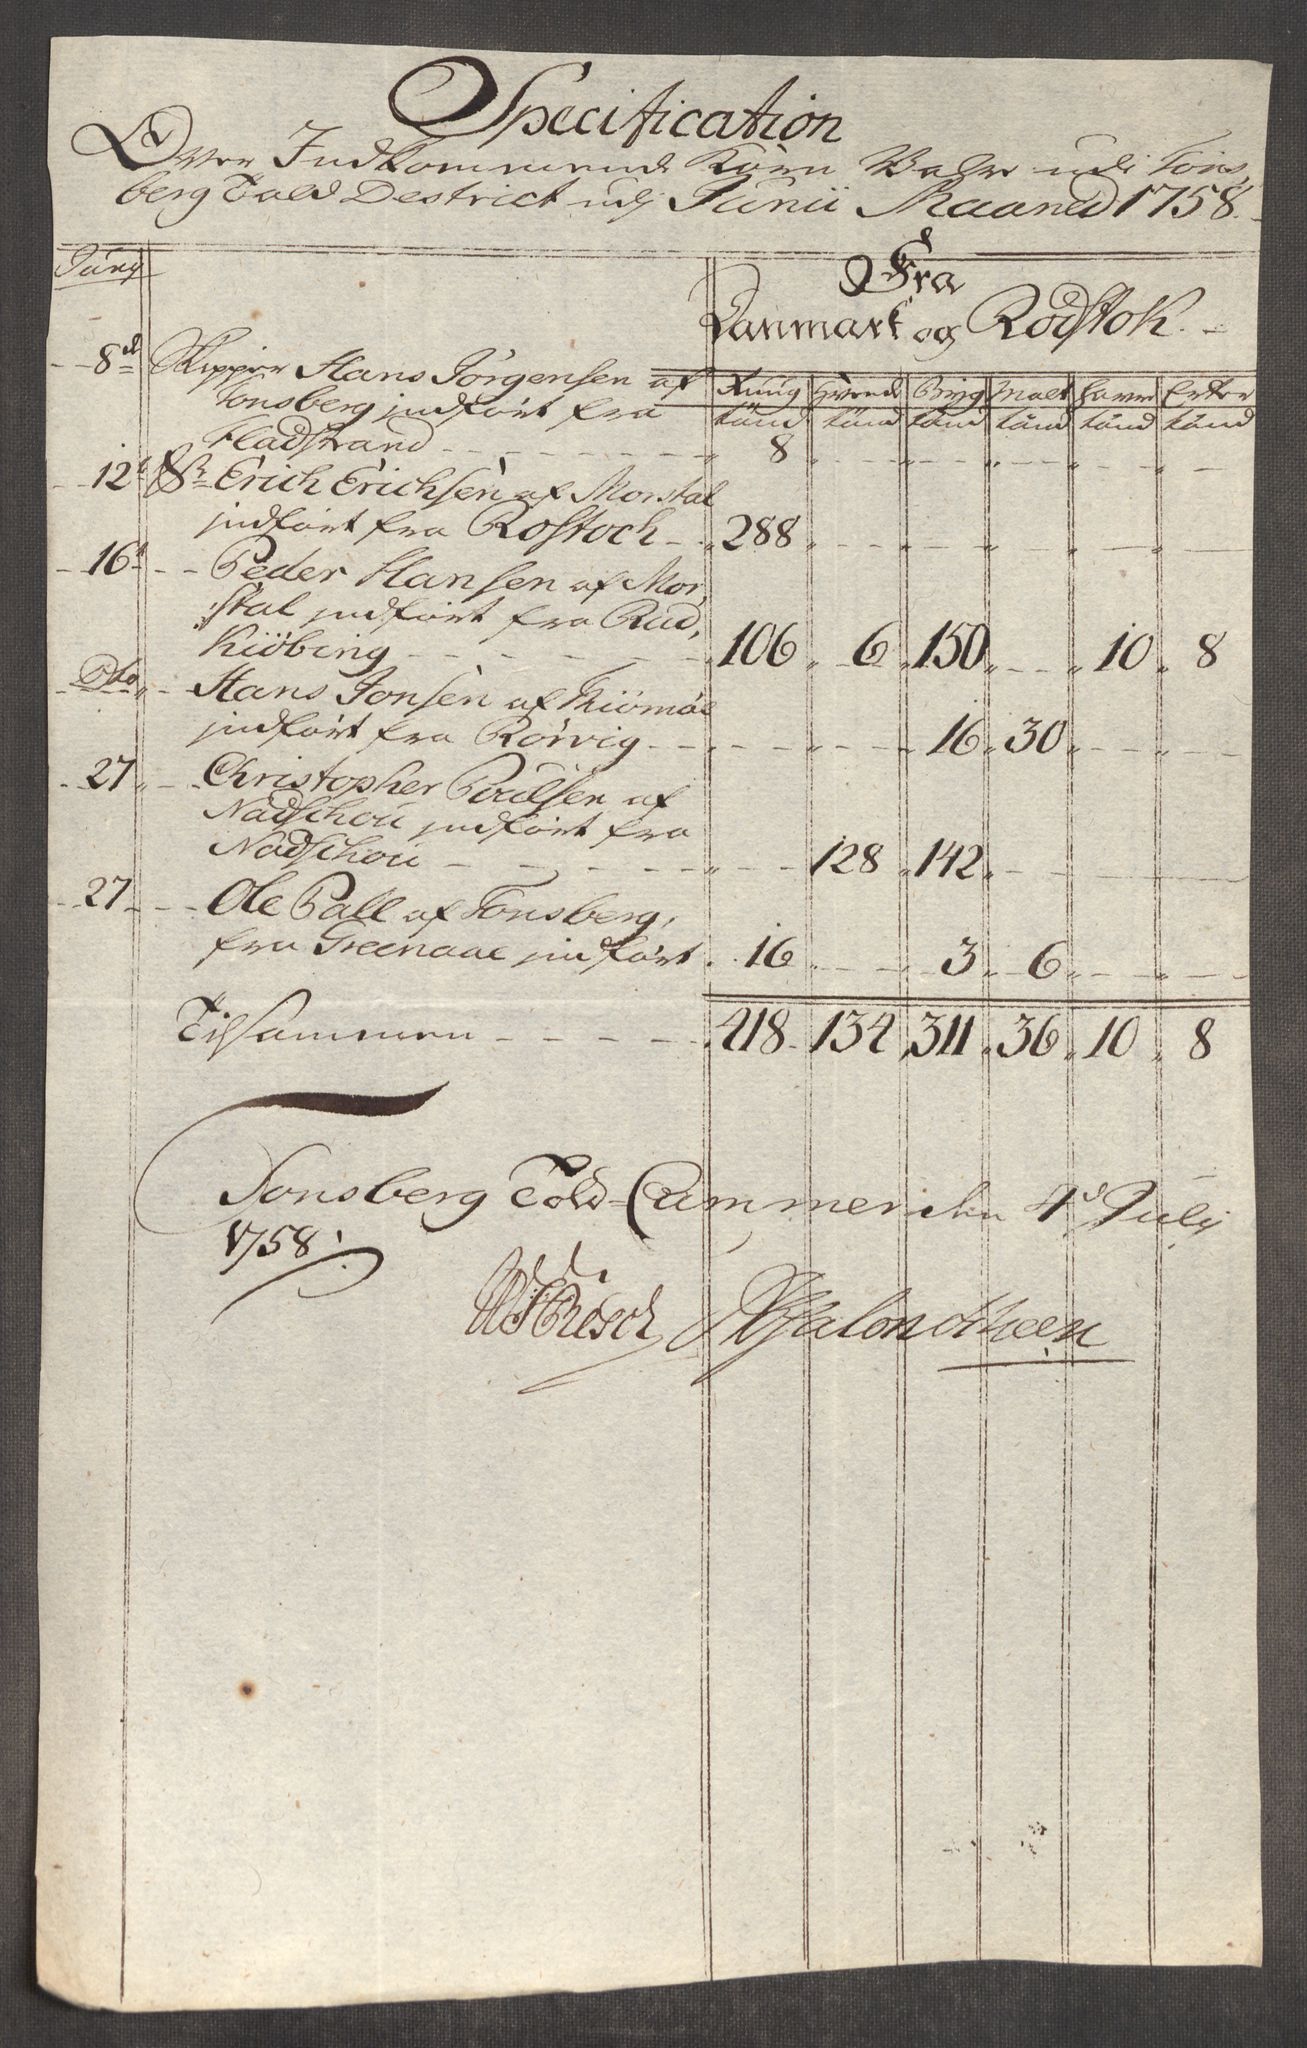 Specification
Over Indkommende Korn Vahre udi Töns,
berg Told Destrict udj Junii Maaned 1758.
Junÿ
Fra
Danmark og Rodstok.
Rung Hvede Byg Malt Havre Erter
tönd tönd tönd tönd tönd tönd
8d Skipper Hans Jörgensen af
Tonsberg indfört fra
Fladstrand 8
12t Sr Erich Erichsen af Morstal
indfört fra Rostoch 288
16t Peder Hansen af Mor,
stal indfört fra Rud,
Kiöbing 106 6 150 10 8
Dto Hans Jonsen af Kiömöe
indfört fra Rörvig 16 30
27 Christopher Poulsen af
Nadschou indfört fra
Nadschou 128 142
27 Ole Pall af Tonsberg,
fra Greenaae indfört 16 3 6
Tilsammen 418 134 311 36 10 8
Tonsberg Told-Cammer den 4d Julÿ
1758.